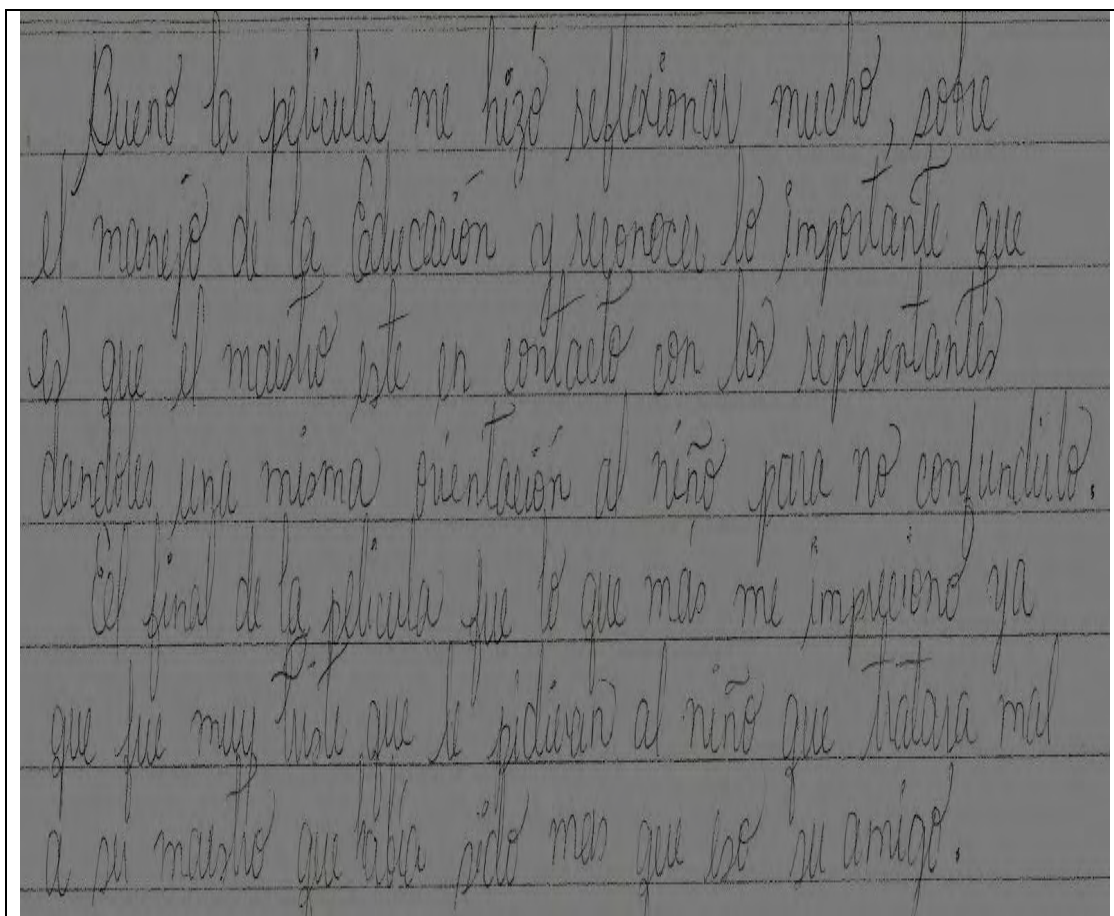 Bueno la pelicula me hizó reflexionar mucho, sobre
el manejo de la Educación y reconocer lo importante que
es que el maestro este en contacto con los representantes
dandoles una misma orientación al niño para no confundirlo.
El final de la pelicula fue lo que más me impreciono ya
que fue muy triste que le pidieran al niño que tratara mal
a su maestro que había sido mas que eso su amigo.